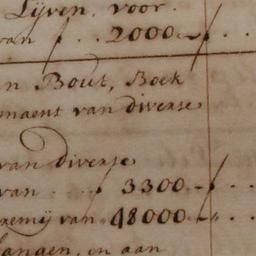 Lijven, voor.
van ƒ . . 2000 ~ ƒ . .
n Bout, Boek
maent van diverse
van diverse
van . . ƒ 3300 ~ ƒ . .
remij van 48000 ~ " . .
langen, en aan